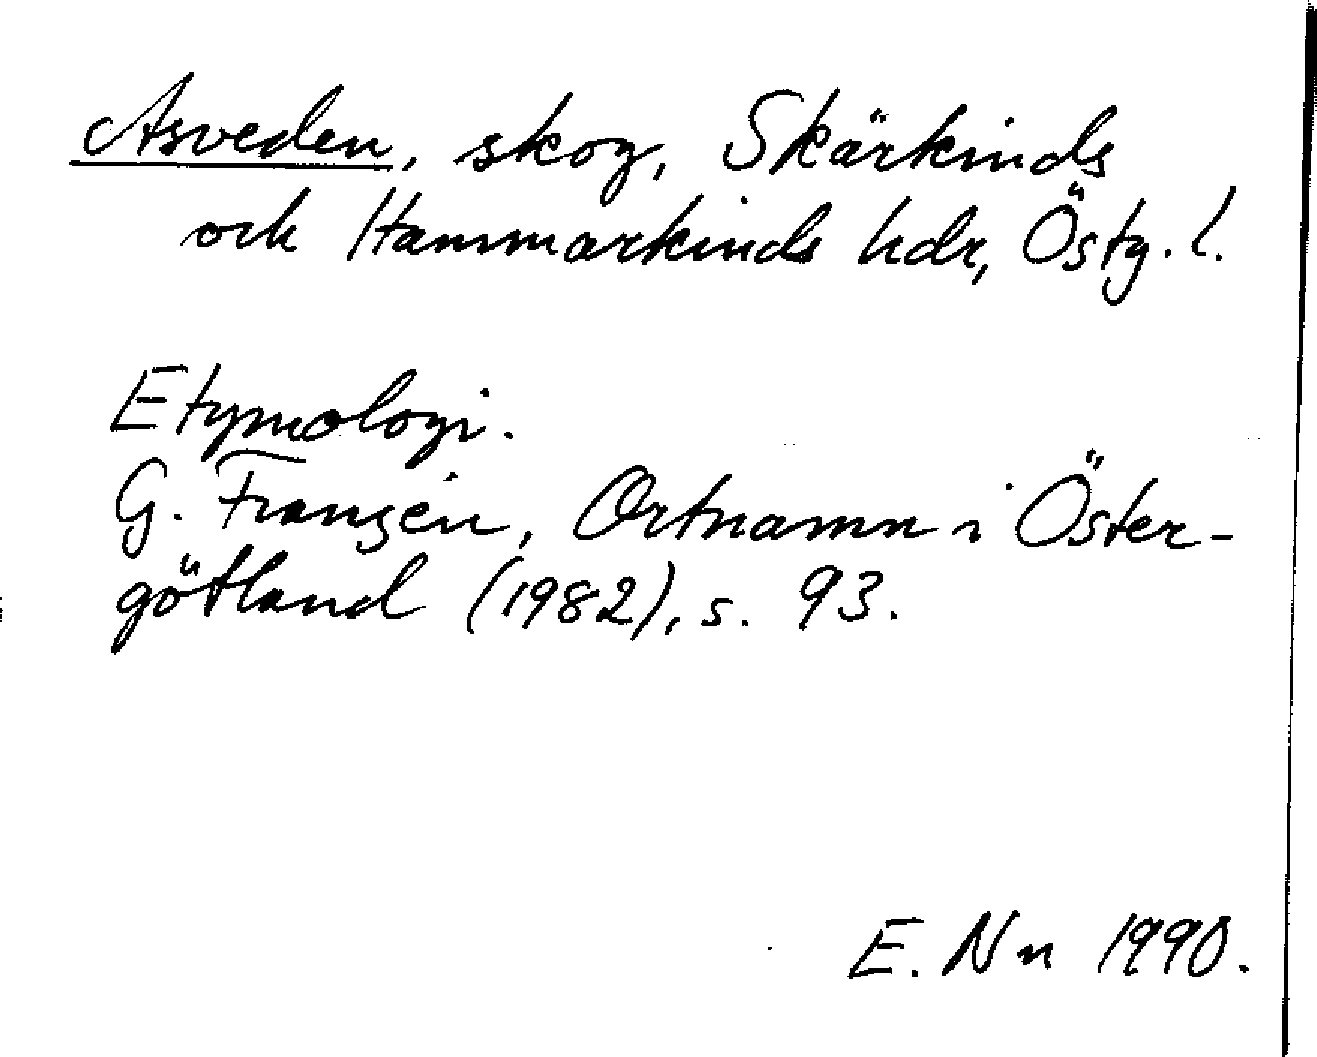 Asveden, skog, Skärkinds
och Hammarkinds hdr, Östg. l.
Etymologi.
G. Franzén, Ortnamn i Öster-
götland (1982), s. 93.
E. Nn 1990.